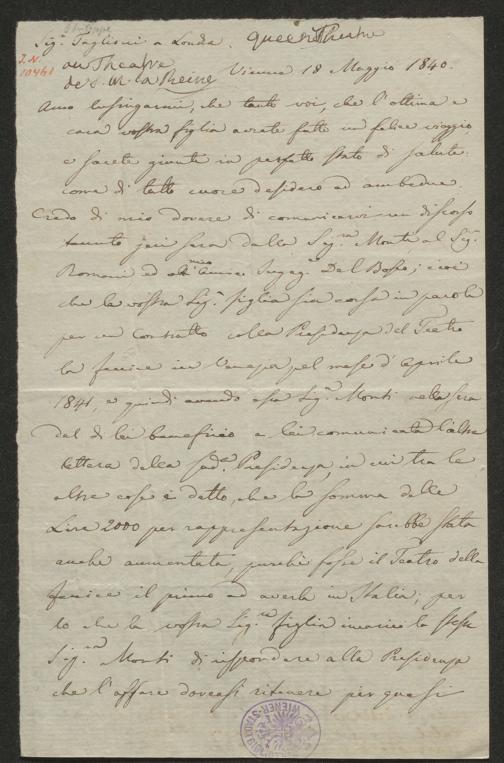 Philippe
Sig.r Taglioni a Londra. Queen Theatre
I.N. au Theatre
10461
de S. M. la Reine Vienna 18 Maggio 1840.
Amo lusingarmi, che tanto voi, che l'ottima e
cara vostra figlia avrete fatto un felice viaggio
e sarete giunti in perfetto stato di salute
come di tutto cuore desidero ad ambedue.
Credo di mio dovere di comunicarvi un discorso
tenuto jeri sera dalla Sig.ra Monti al Sig.r
Romani ed al mio amico Ingeg.e Del Bosio; cioè
che la vostra Sig.a figlia sia corsa in parola
per un Contratto colla Presidenza del Teatro
la fenice in Venezia, pel mese d'Aprile
1841, e quindi avendo essa Sig.ra Monti nella sera
del di lei beneficio a lei comunicata l'altra
lettera della sud.a Presidenza, in cui tra le
altre cose è detto, che la somma delle
Lire 2000 per rappresentazione sarebbe stata
anche aumentata, purchè fosse il Teatro della
fenice il primo ad averla in Italia; per
lo che la vostra Sig.ra figlia incaricò la stessa
Sig.ra Monti di rispondere alla Presidenza
che l'affare doveasi ritenere per quasi